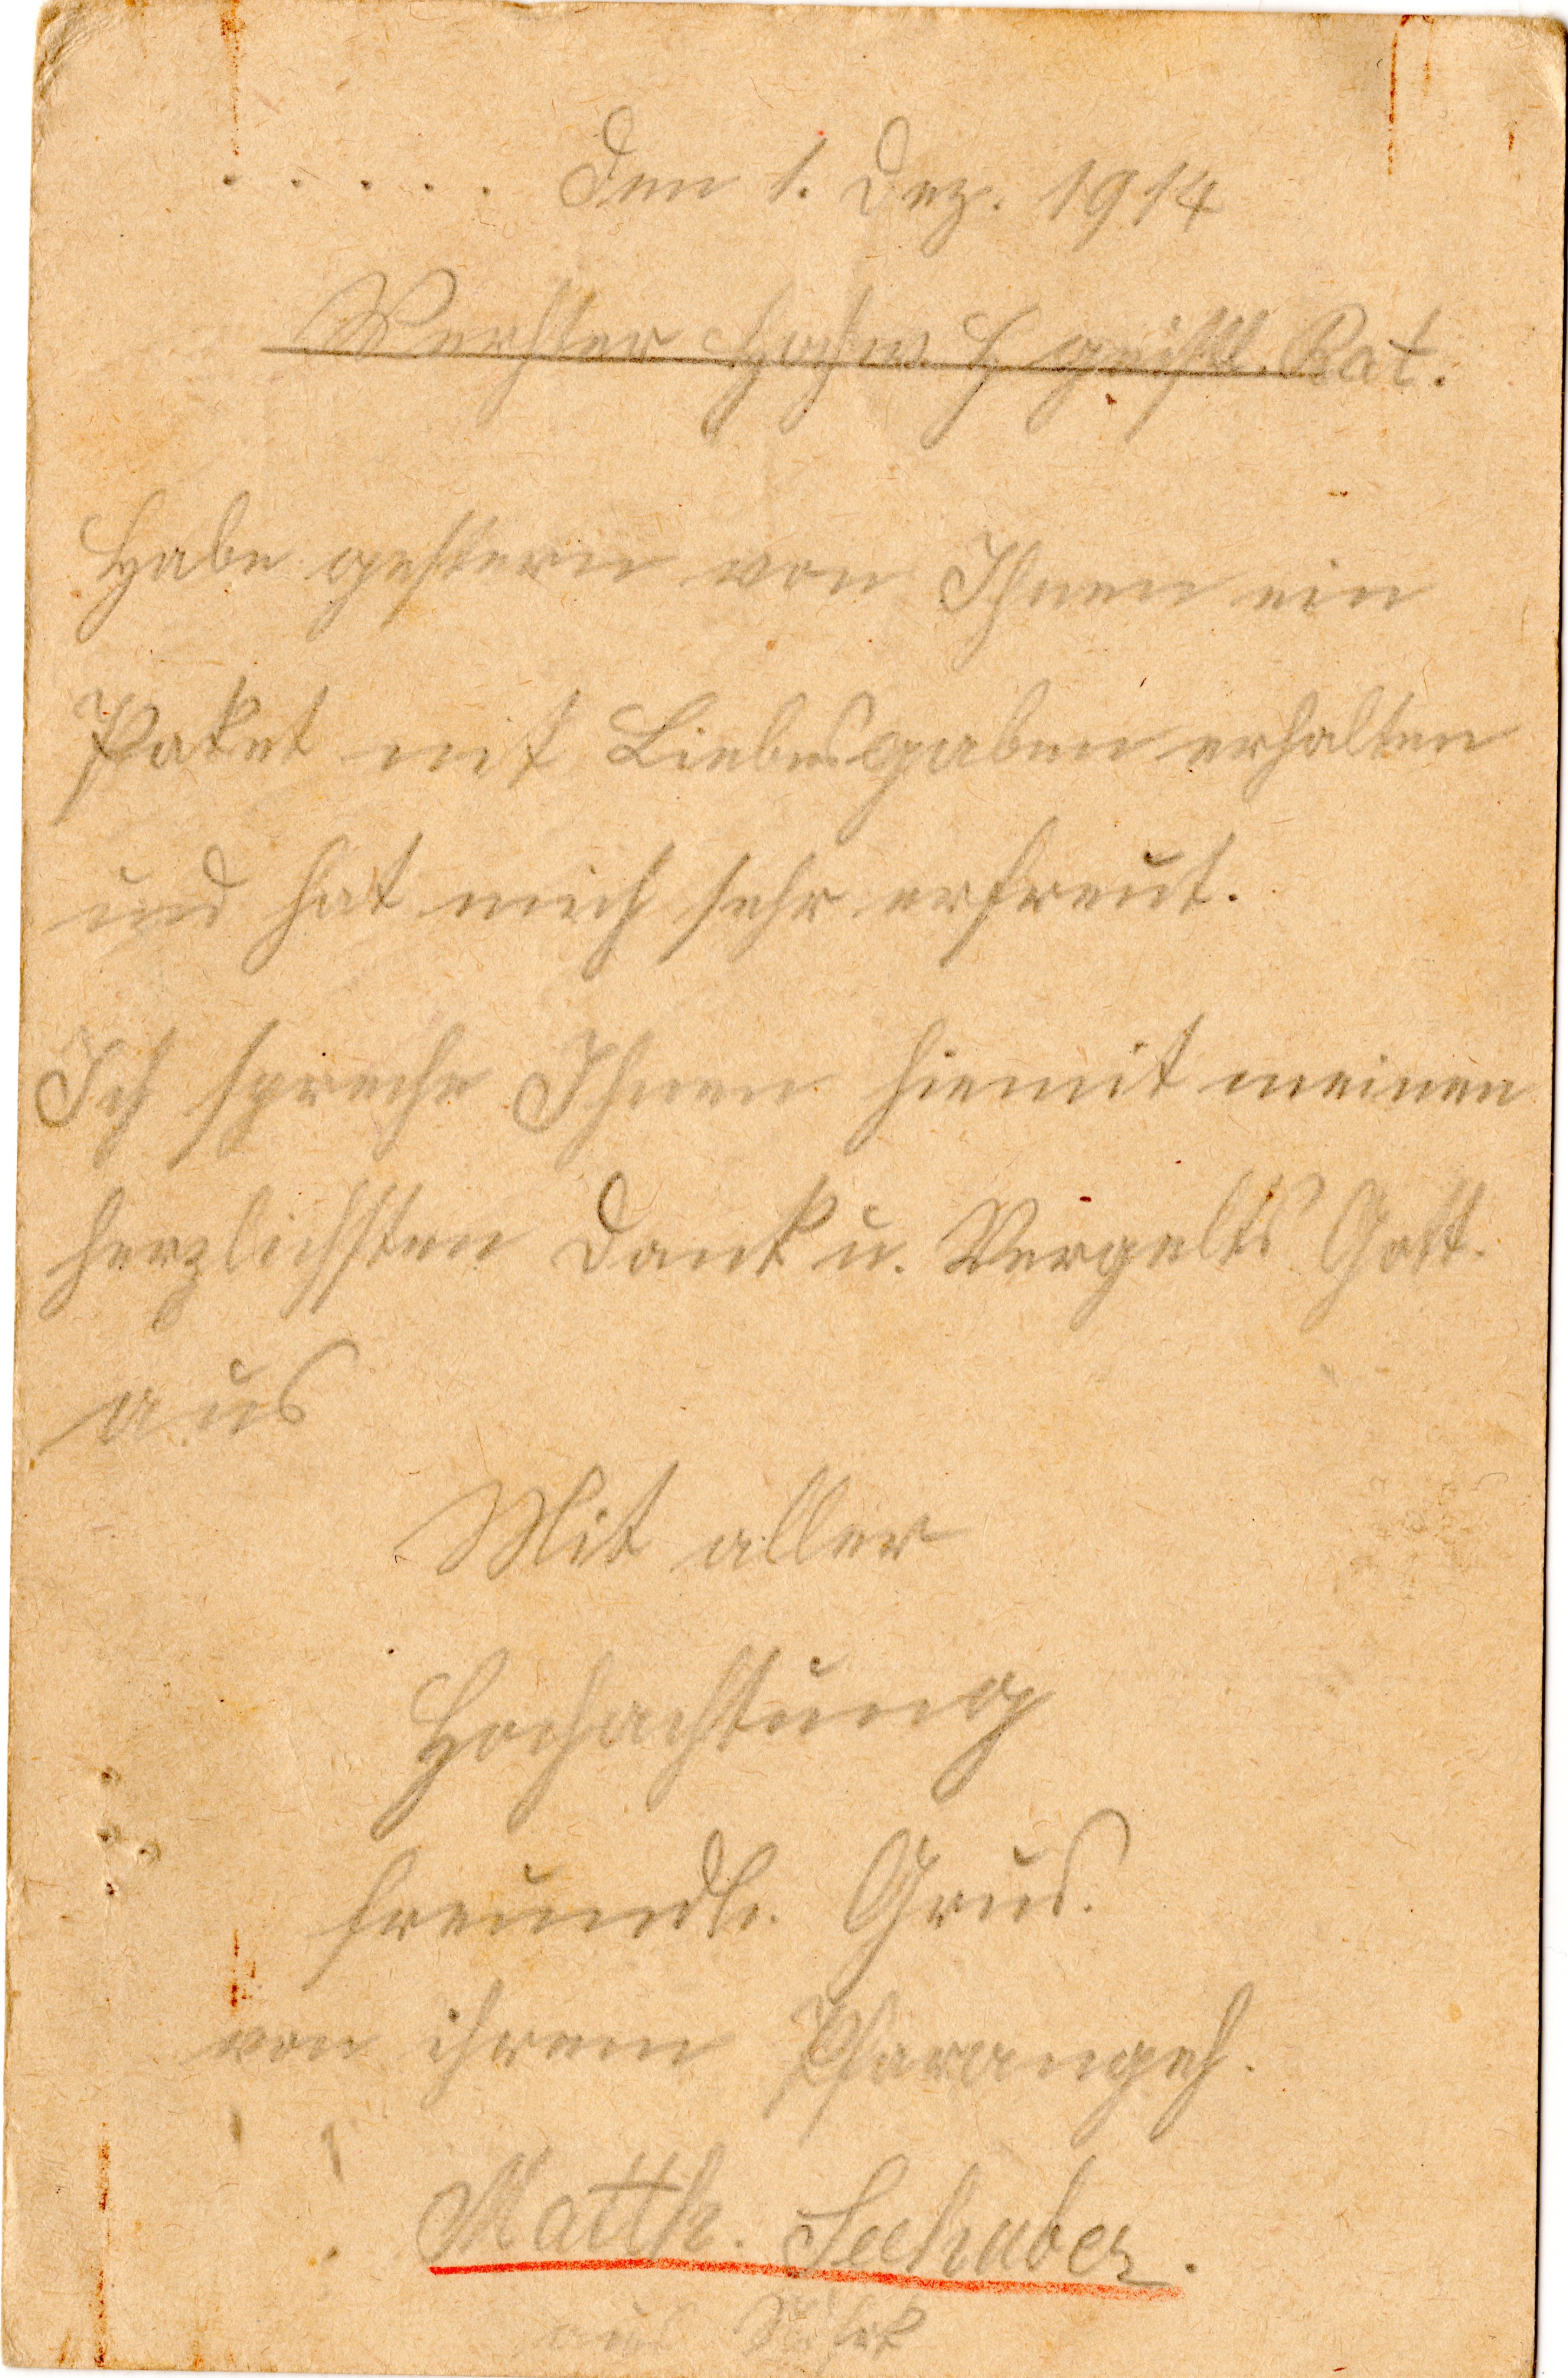 . . . . . Den 1. Dez. 1914
Werthster Hochw. H. geistl. Rat.
Habe gestern von Ihnen ein
Paket mit Liebesgaben erhalten
und hat mich sehr erfreut.
Ich spreche Ihnen hiemit meinen
herzlichsten Dank u. Vergelts Gott.
aus
Mit aller
Hochachtung
freundl. Grus.
von ihrem Pfarangeh.
Matth. Seehuber.
aus